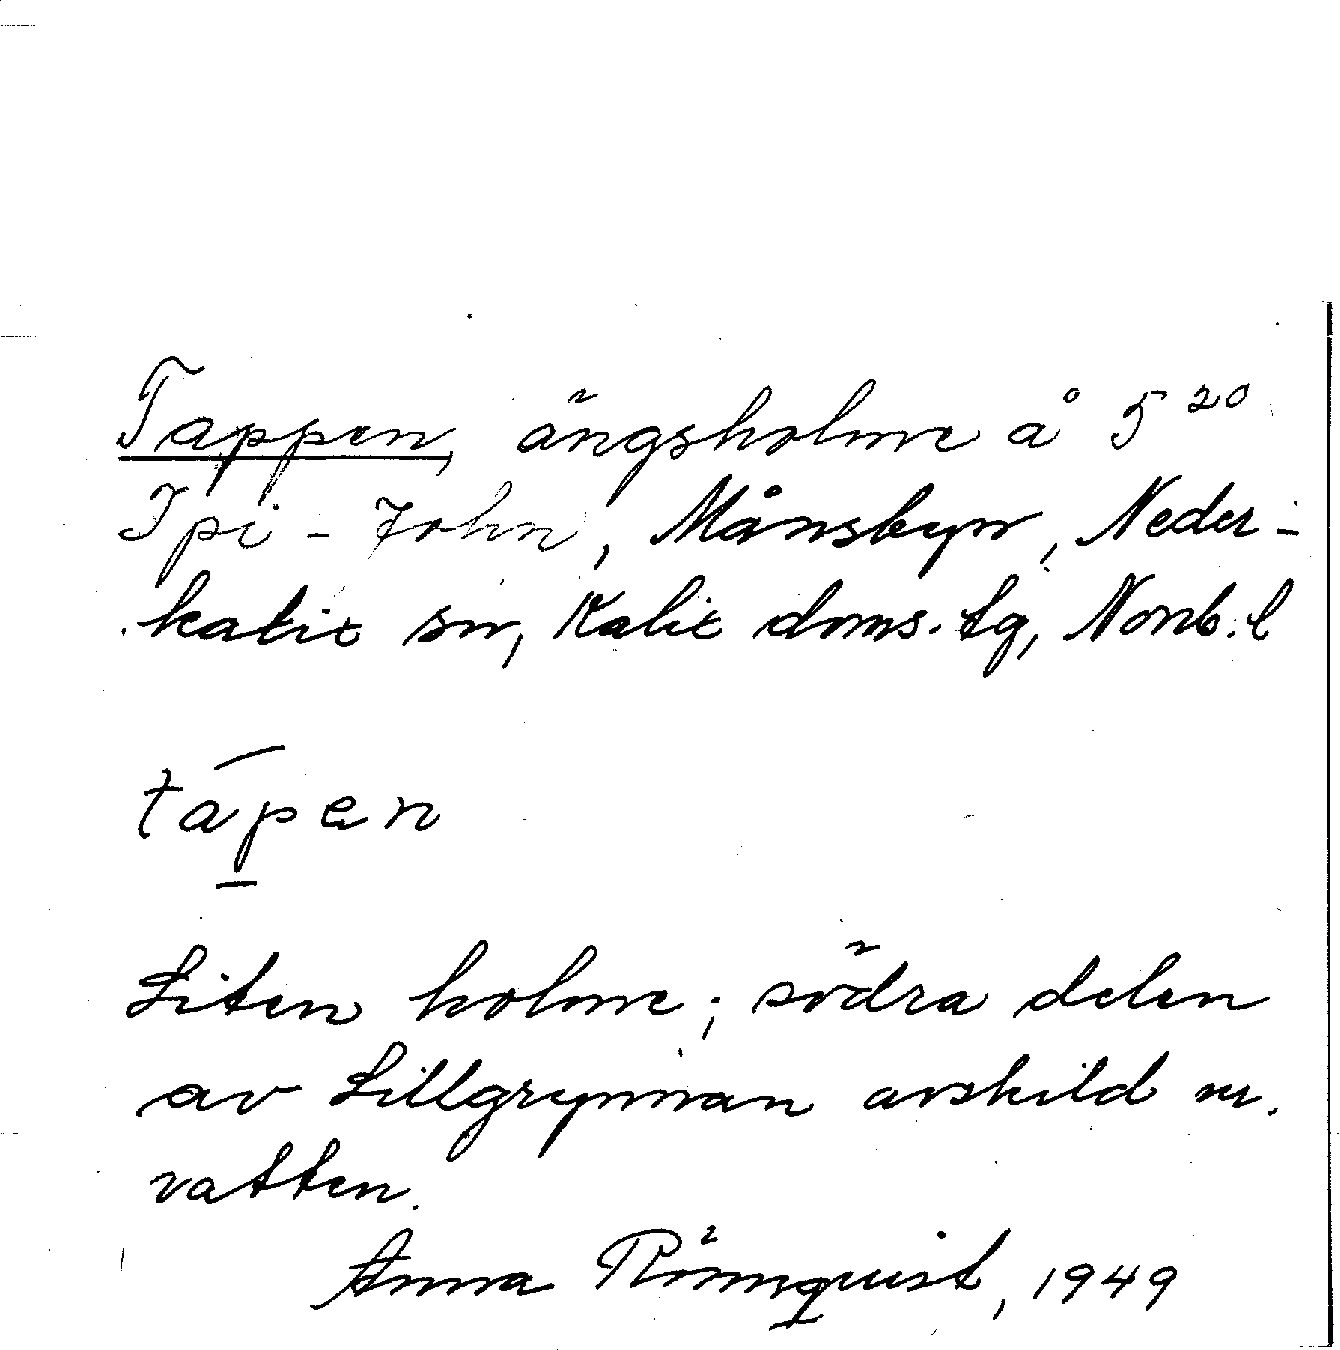 Tappen, ängsholme å 5 20
Ipi-John, Månsbyn, Neder-
kalix sn, Kalix doms.tg, Norrb.l
tápen
Liten holme; södra delen
av Lillgrynnan avskild m.
vatten.
Anna Rönnquist, 1949